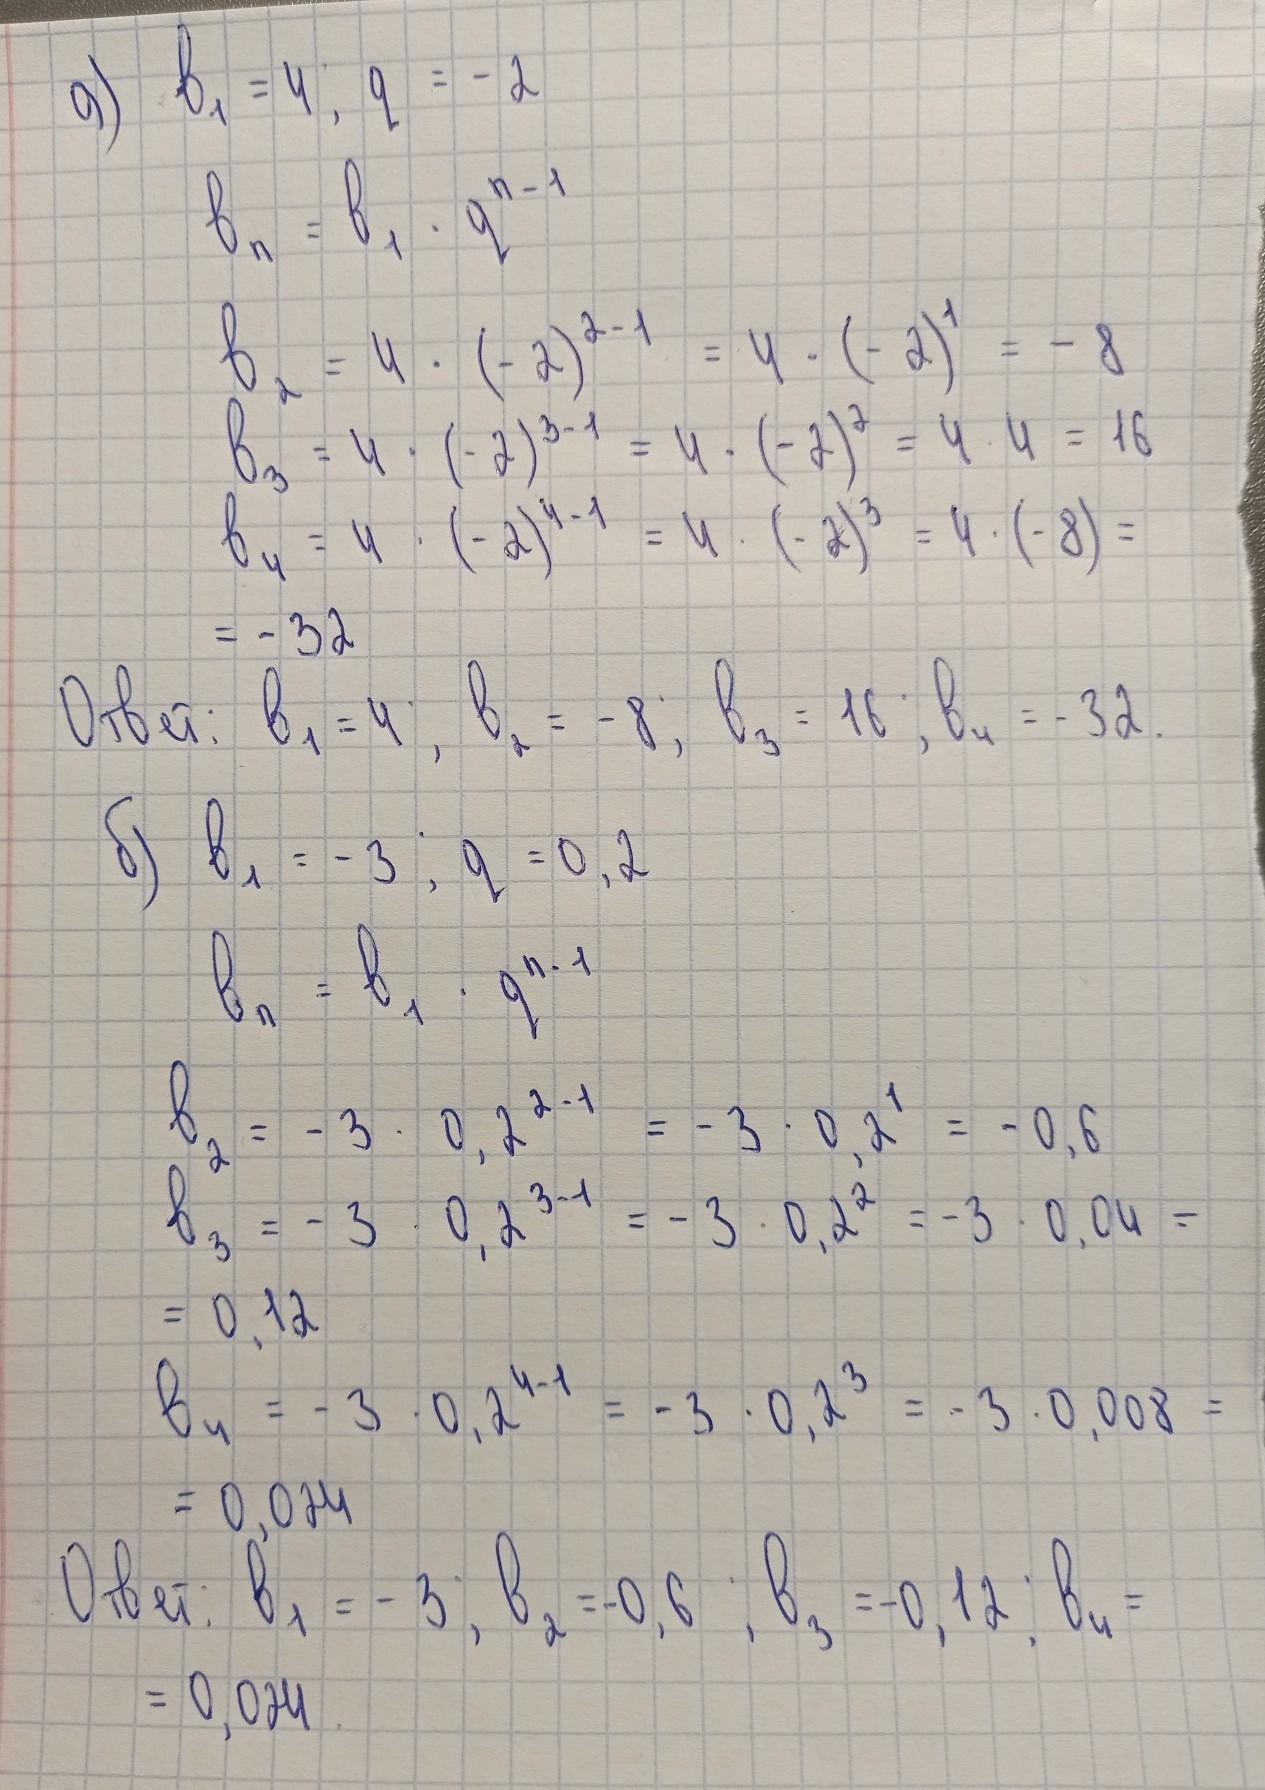 а) b₁ = 4; q = -2
bₙ = b₁ · qⁿ⁻¹
b₂ = 4 · (-2)²⁻¹ = 4 · (-2)¹ = -8
b₃ = 4 · (-2)³⁻¹ = 4 · (-2)² = 4 · 4 = 16
b₄ = 4 · (-2)⁴⁻¹ = 4 · (-2)³ = 4 · (-8) =
= -32
Ответ: b₁ = 4; b₂ = -8; b₃ = 16; b₄ = -32.
б) b₁ = -3; q = 0,2
bₙ = b₁ · qⁿ⁻¹
b₂ = -3 · 0,2²⁻¹ = -3 · 0,2¹ = -0,6
b₃ = -3 · 0,2³⁻¹ = -3 · 0,2² = -3 · 0,04 =
= 0,12
b₄ = -3 · 0,2⁴⁻¹ = -3 · 0,2³ = -3 · 0,008 =
= 0,024
Ответ: b₁ = -3; b₂ = -0,6; b₃ = -0,12; b₄ =
= 0,024.